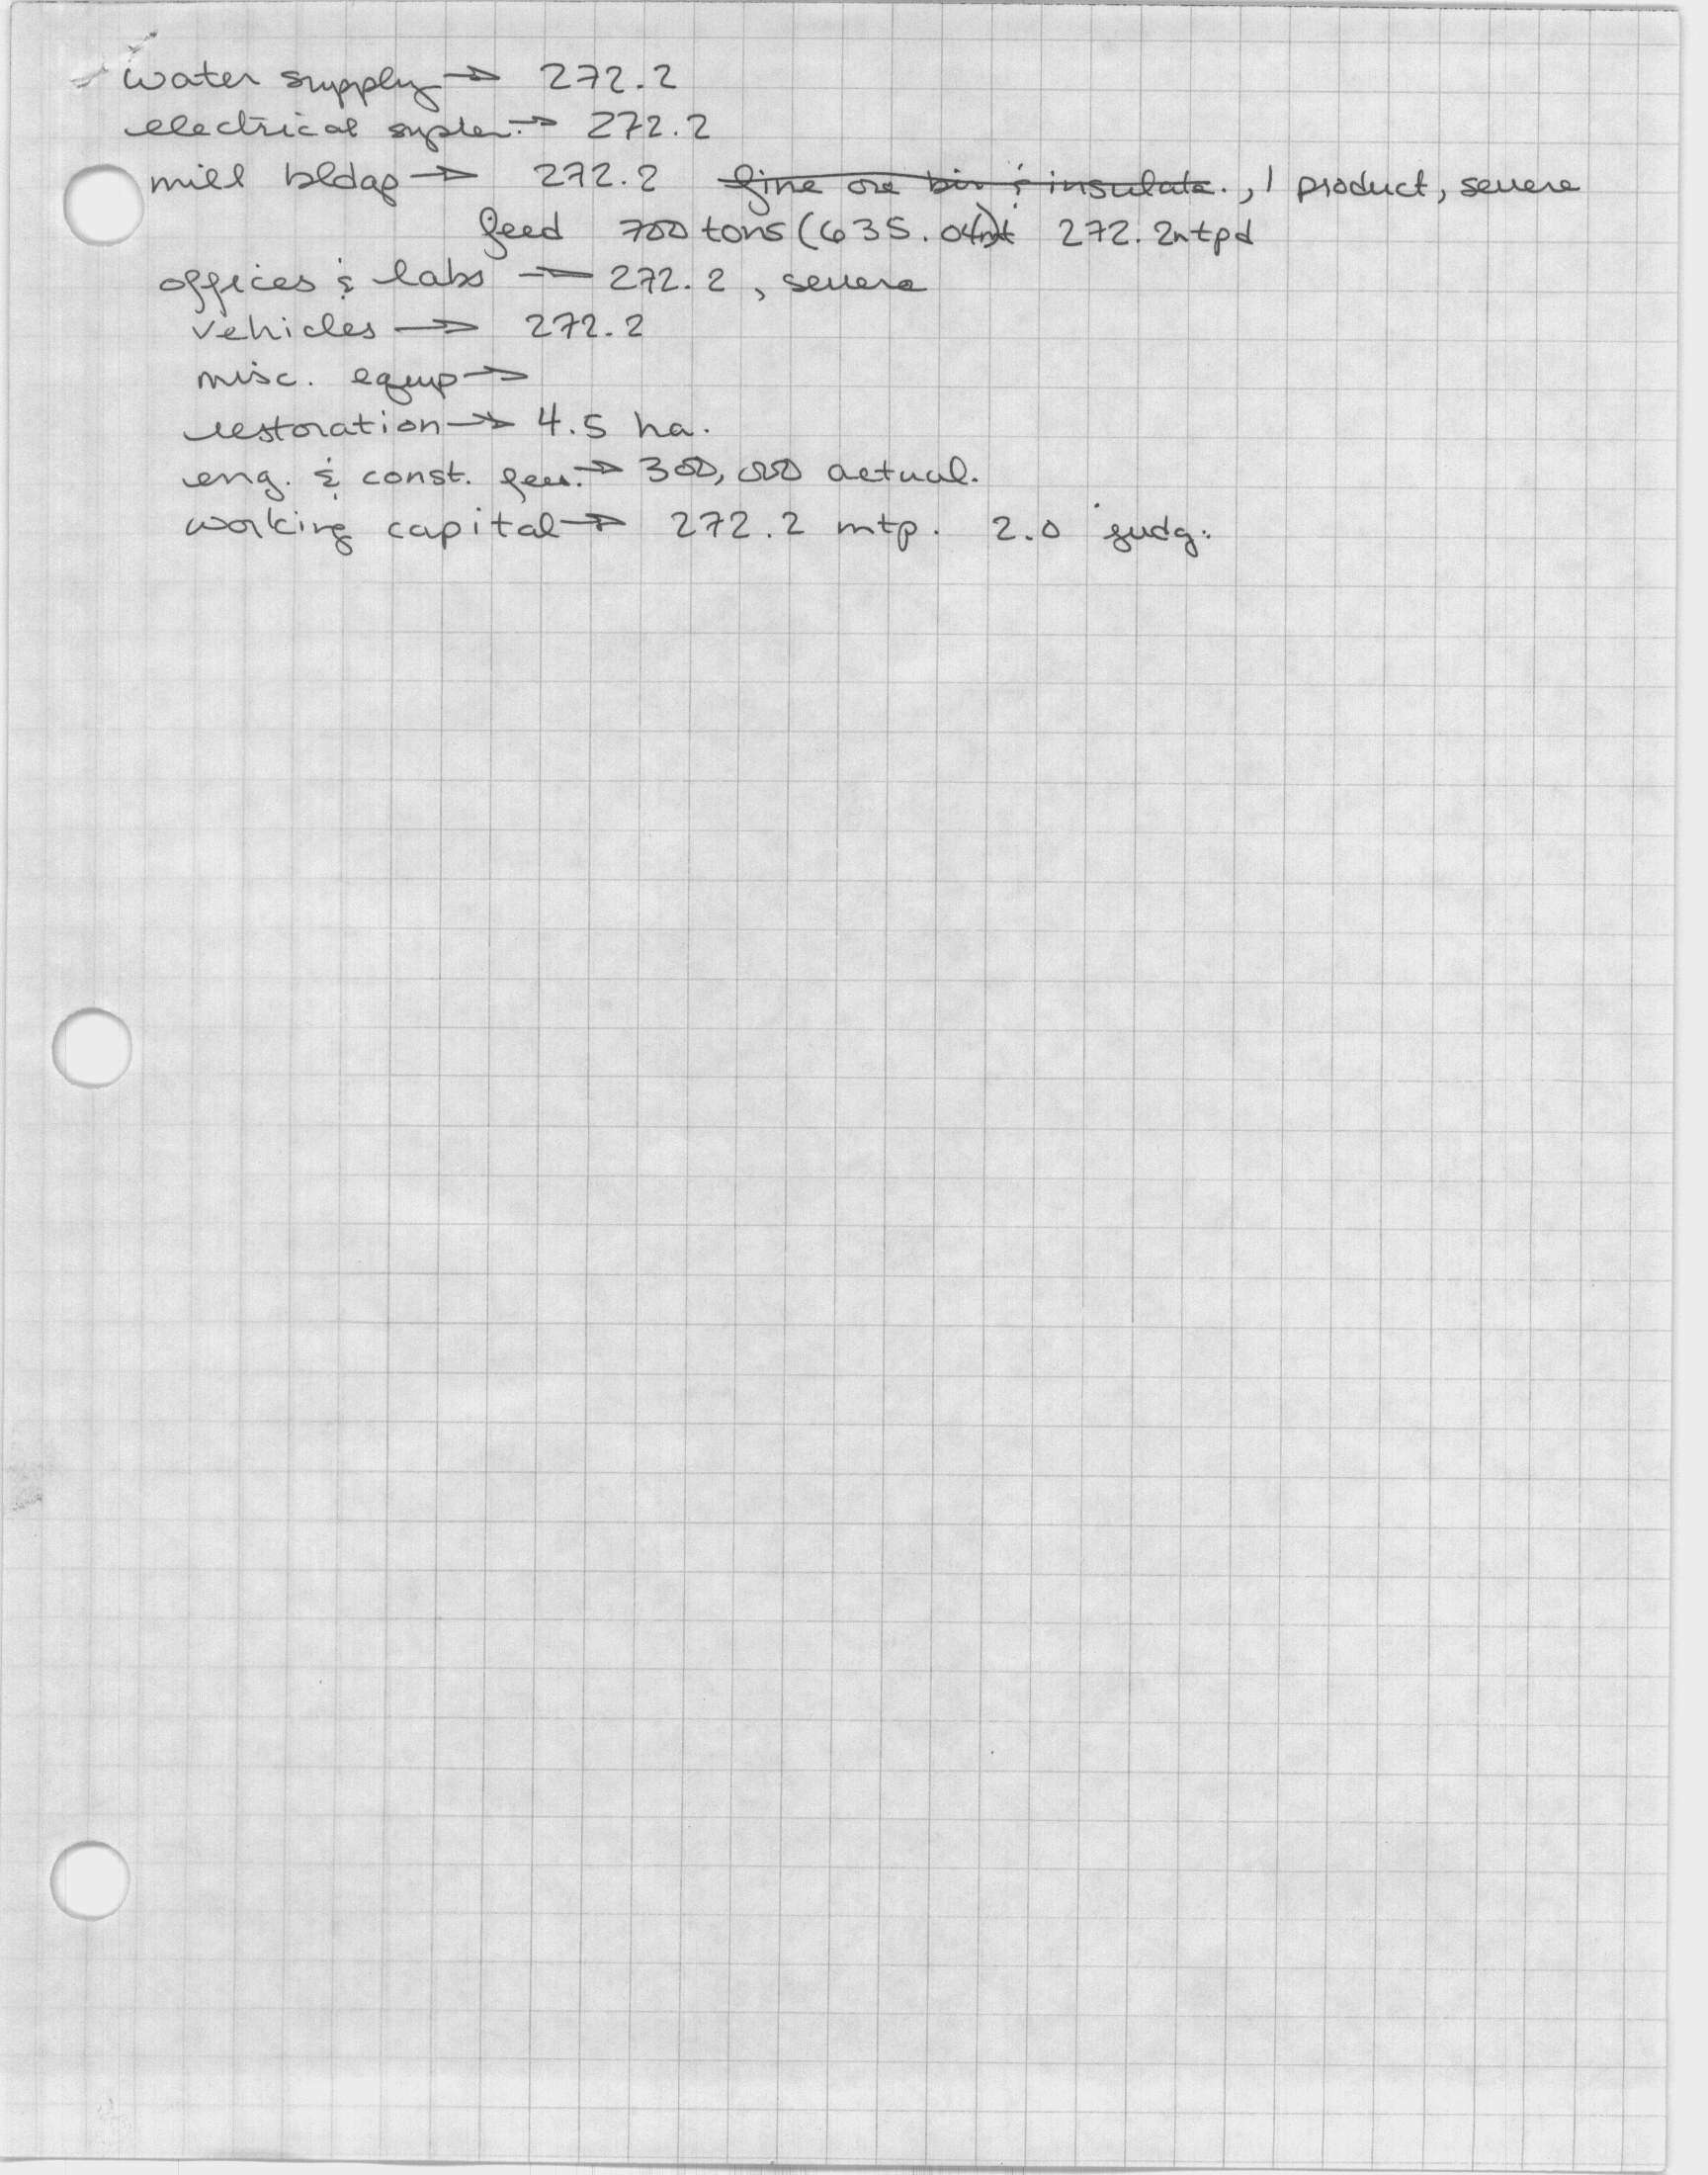 water supply → 272.2
electrical system → 272.2
mill bldg → 272.2 fine ore bin & insulate., 1 product, severe
feed 700 tons (635.04) mt 272.2 mtpd
offices & labs — 272.2, severe
vehicles → 272.2
misc. equip →
restoration → 4.5 ha.
eng. & const. fees. → 300,000 actual.
working capital → 272.2 mtp. 2.0 judg.